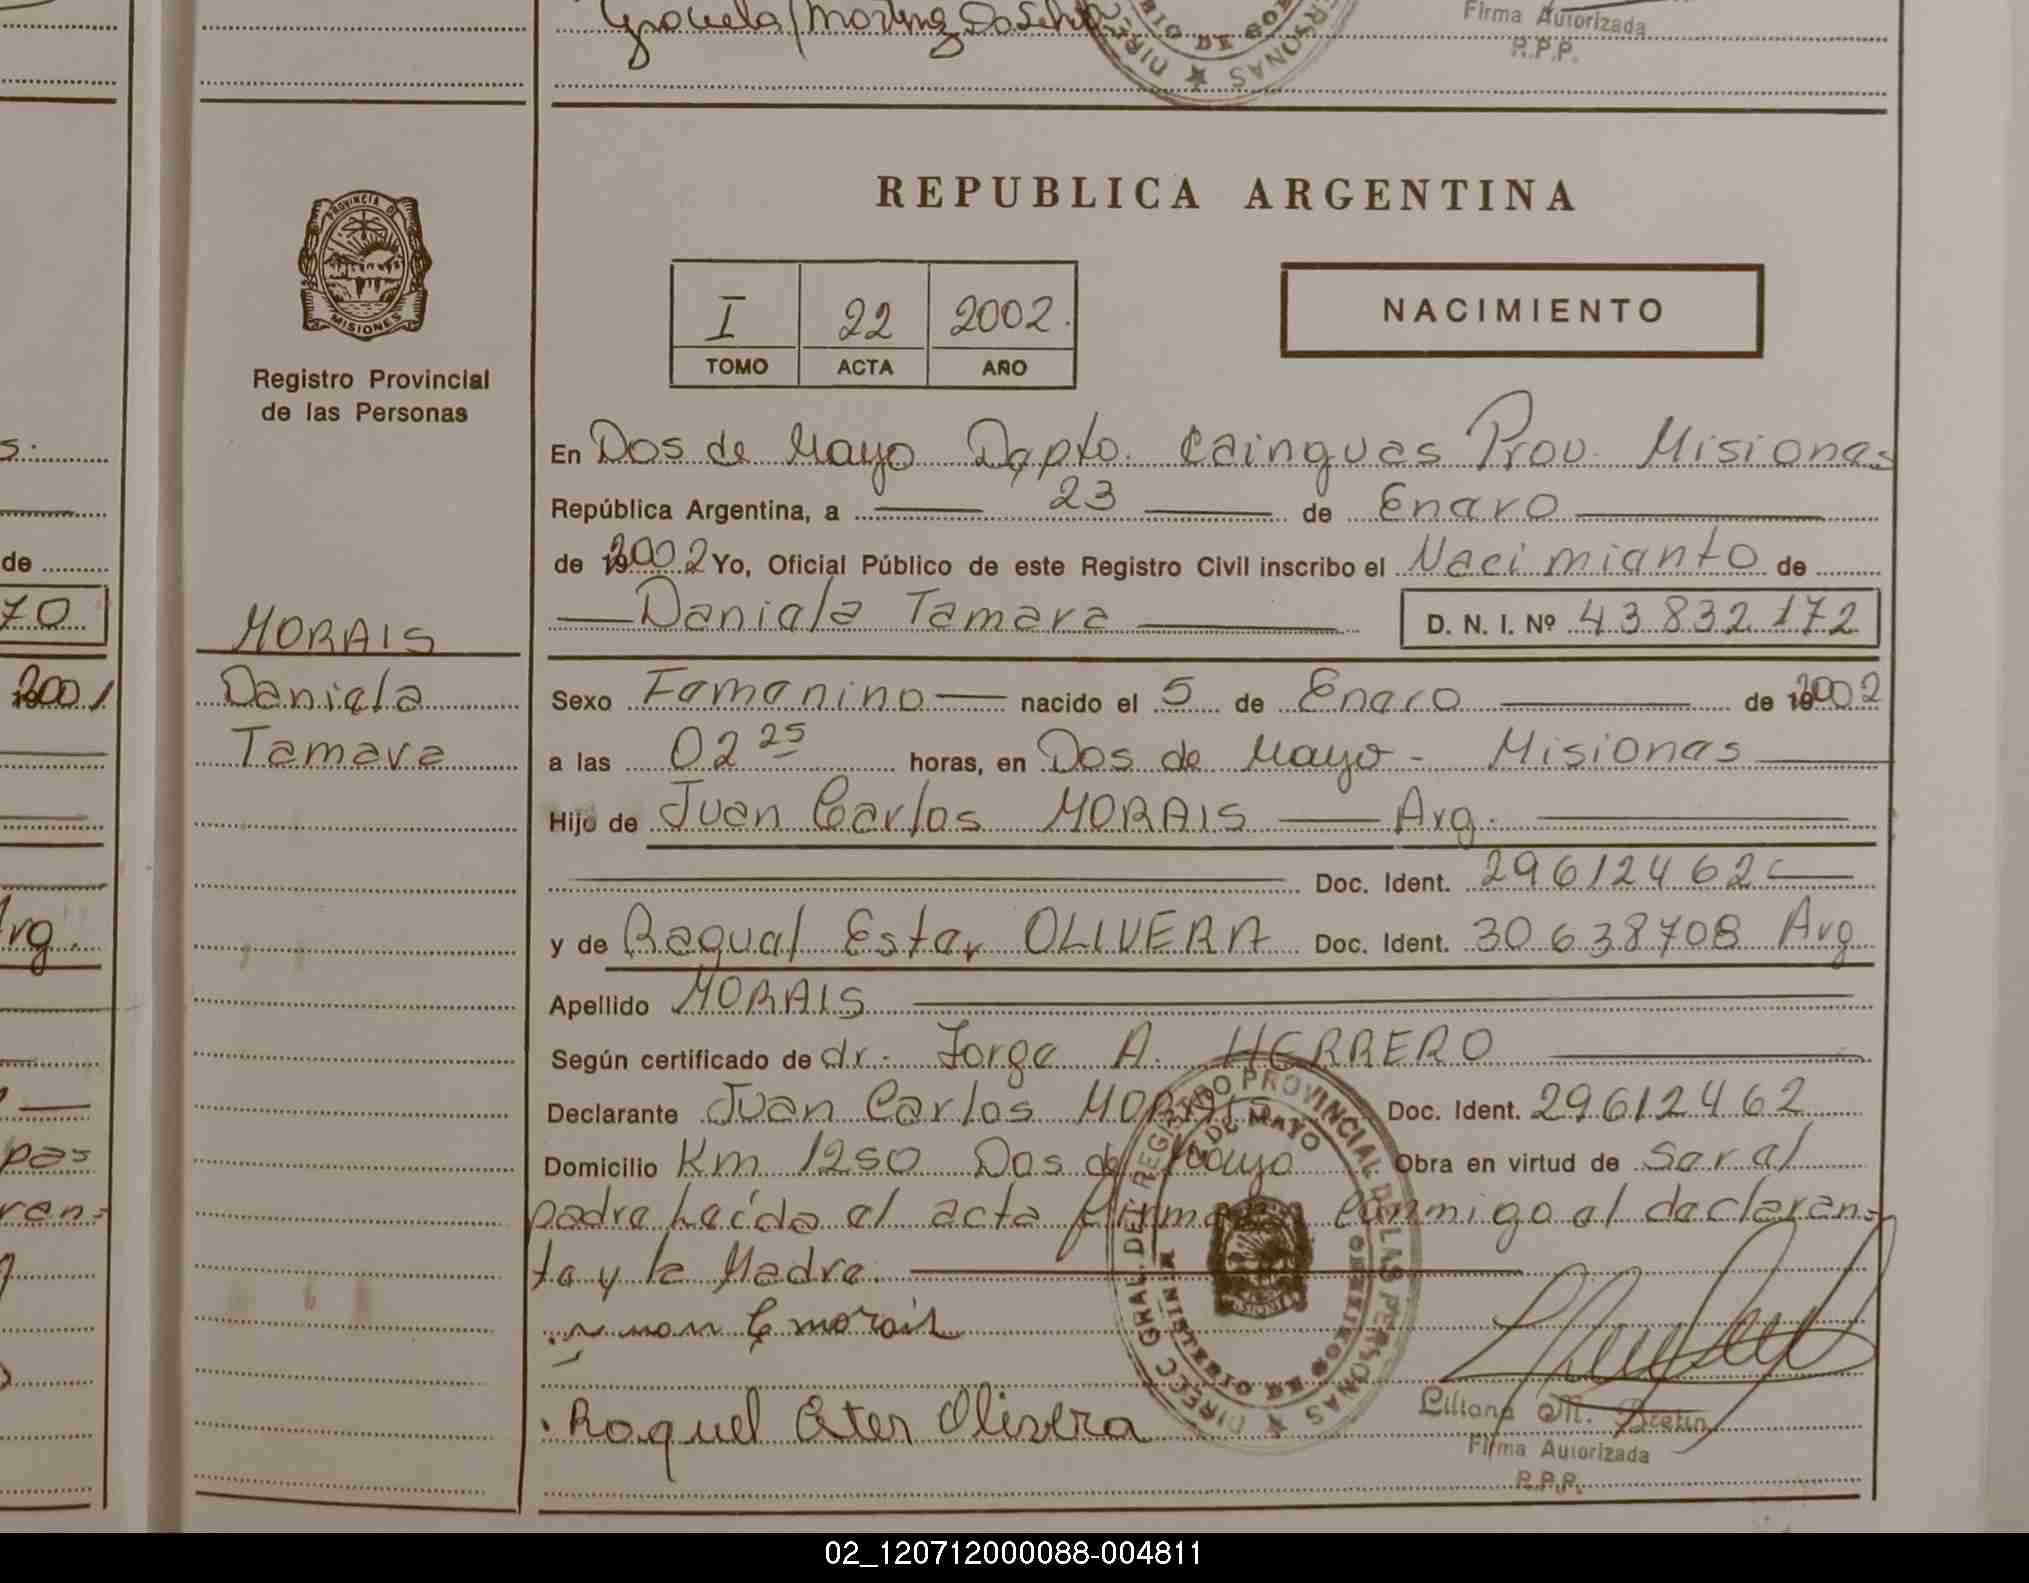 Firma Autorizada
R.P.P.
REPUBLICA ARGENTINA
PROVINCIA DE
MISIONES
I 22 2002.
TOMO ACTA AÑO
NACIMIENTO
Registro Provincial
de las Personas
En Dos de Mayo Dapto. Cainguas Prov. Misiones
República Argentina, a 23 de Enero
de 2002 Yo, Oficial Público de este Registro Civil inscribo el Nacimiento de
Daniela Tamara D. N. I. Nº 43.832.172
MORAIS
Daniela
Tamara
Sexo Femenino nacido el 5 de Enero de 2002
a las 02 25 horas, en Dos de Mayo - Misiones
Hijo de Juan Carlos MORAIS Arg.
Doc. Ident. 29612462
y de Raquel Ester OLIVERA Doc. Ident. 30638708 Arg
Apellido MORAIS
Según certificado de dr. Jorge A. HERRERO
Declarante Juan Carlos MORAIS Doc. Ident. 29612462
Domicilio Km 1250 Dos de Mayo Obra en virtud de Ser al
padre Leída el acta firma Conmigo el declaran-
te y la Madre.
Raquel Ester Olivera
Liliana M.
Firma Autorizada
R.P.P.
DIREC. GRAL. DEL REGISTRO PROVINCIAL DE LAS PERSONAS
2 DE MAYO
MINISTERIO DE GOBIERNO
s.
de
70
2001
Arg.
pas
ren-
02_120712000088-004811